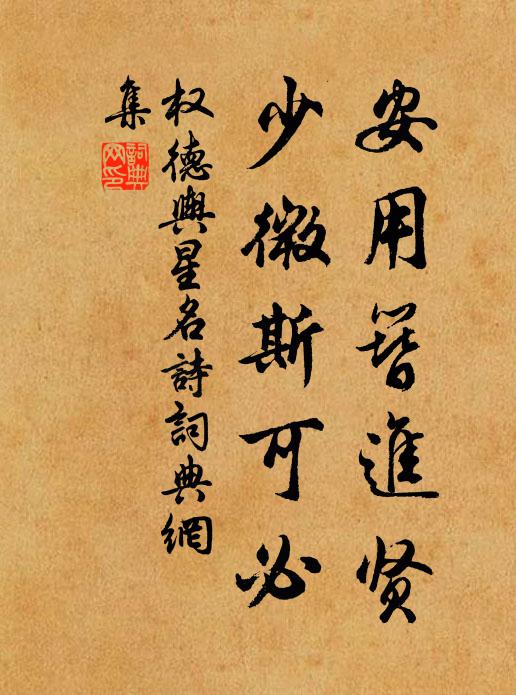 安用簪進贤
少微斯可必
权德輿星名詩詞典網
集
詞典網印